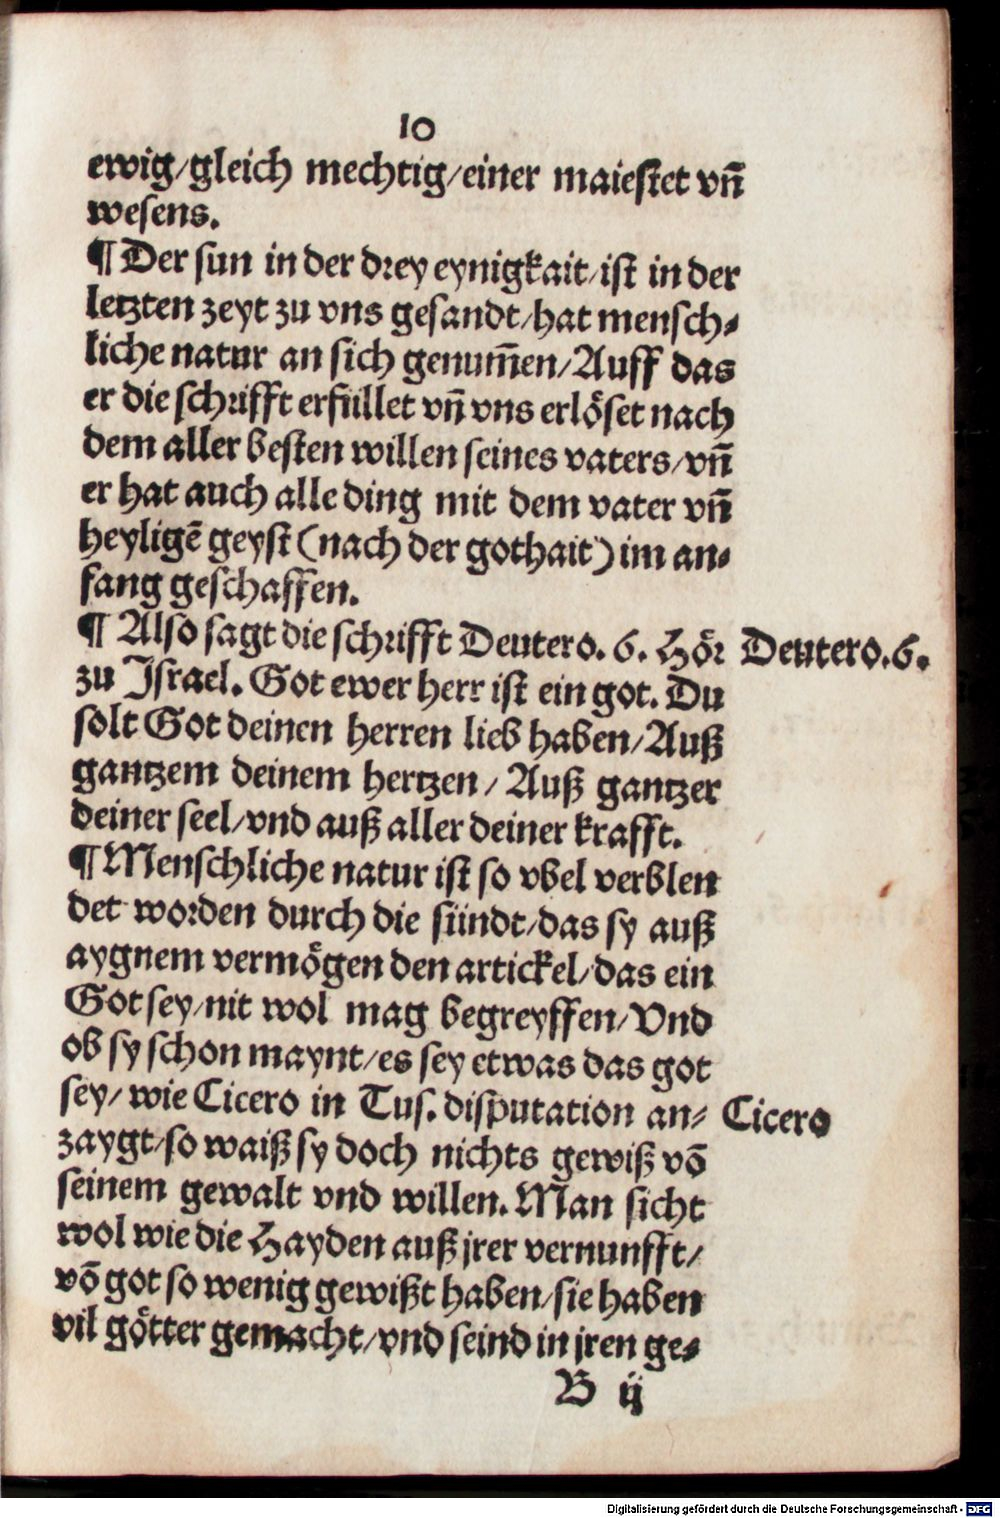 10
ewig/gleich mechtig/einer maiestet vñ
wesens.
¶ Der sun in der drey eynigkait/ist in der
letzten zeyt zu vns gesandt/hat mensch⸗
liche natur an sich genum̃en/Auff das
er die schrifft erfüllet vñ vns erlöset nach
dem aller besten willen seines vaters/vñ
er hat auch alle ding mit dem vater vñ
heyligẽ geyst (nach der gothait) im an⸗
fang geschaffen.
¶ Also sagt die schrifft Deutero. 6. Hör Deutero.6.
zu Israel. Got ewer herr ist ein got. Du
solt Got deinen herren lieb haben/Auß
gantzem deinem hertzen/ Auß gantzer
deiner seel/vnd auß aller deiner krafft.
¶ Menschliche natur ist so vbel verblen
det worden durch die sündt/das sy auß
aygnem vermögen den artickel/das ein
Got sey/nit wol mag begreyffen/Vnd
ob sy schon maynt/es sey etwas das got
sey/ wie Cicero in Tus. disputation an⸗ Cicero
zaygt/so waiß sy doch nichts gewiß võ
seinem gewalt vnd willen. Man sicht
wol wie die Hayden auß jrer vernunfft/
võ got so wenig gewißt haben/sie haben
vil götter gemacht/vnd seind in jren ge⸗
B ij
Digitalisierung gefördert durch die Deutsche Forschungsgemeinschaft - DFG